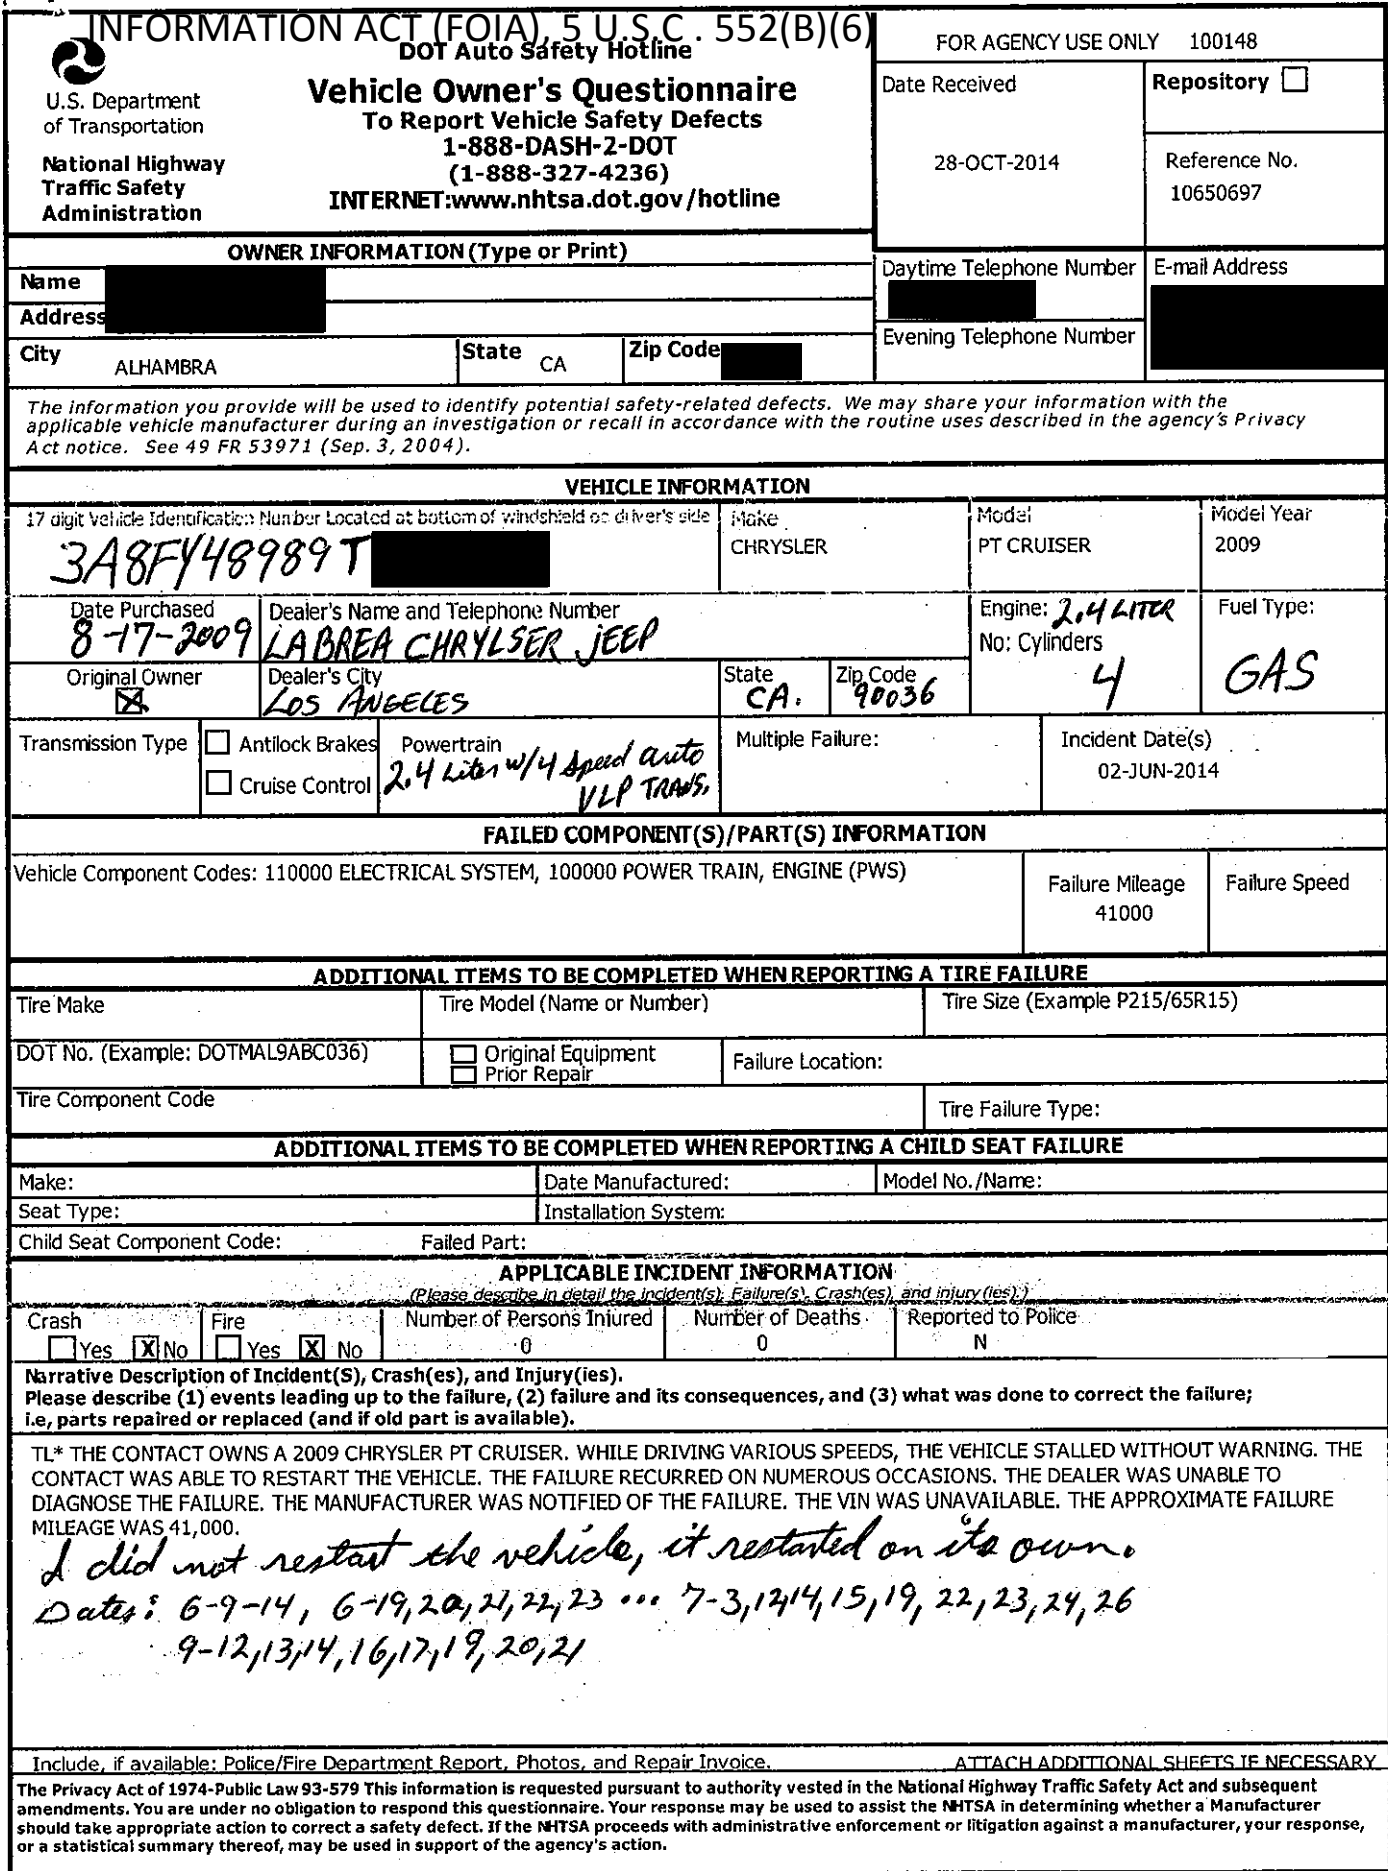 INFORMATION ACT (FOIA), 5 U.S.C . 552(B)(6)
U.S. Department
of Transportation
National Highway
Traffic Safety
Administration
DOT Auto Safety Hotline
Vehicle Owner's Questionnaire
To Report Vehicle Safety Defects
1-888-DASH-2-DOT
(1-888-327-4236)
INTERNET:www.nhtsa.dot.gov/hotline
FOR AGENCY USE ONLY 100148
Date Received
28-OCT-2014
Repository
Reference No.
10650697
OWNER INFORMATION (Type or Print)
Name
Address
City ALHAMBRA State CA Zip Code
Daytime Telephone Number
Evening Telephone Number
E-mail Address
The information you provide will be used to identify potential safety-related defects. We may share your information with the
applicable vehicle manufacturer during an investigation or recall in accordance with the routine uses described in the agency's Privacy
Act notice. See 49 FR 53971 (Sep. 3, 2004).
VEHICLE INFORMATION
17 digit Vehicle Identification Number Located at bottom of windshield on driver's side
3A8FY48989T
Make
CHRYSLER
Model
PT CRUISER
Model Year
2009
Date Purchased
8-17-2009
Dealer's Name and Telephone Number
LABREA CHRYLSER JEEP
Engine: 2.4 LITER
No: Cylinders
4
Fuel Type:
GAS
Original Owner
Dealer's City
LOS ANGELES
State
CA.
Zip Code
90036
Transmission Type
Antilock Brakes
Cruise Control
Powertrain
2.4 Liter w/4 Speed auto
VLP TRANS.
Multiple Failure:
Incident Date(s)
02-JUN-2014
FAILED COMPONENT(S)/PART(S) INFORMATION
Vehicle Component Codes: 110000 ELECTRICAL SYSTEM, 100000 POWER TRAIN, ENGINE (PWS)
Failure Mileage
41000
Failure Speed
ADDITIONAL ITEMS TO BE COMPLETED WHEN REPORTING A TIRE FAILURE
Tire Make
Tire Model (Name or Number)
Tire Size (Example P215/65R15)
DOT No. (Example: DOTMAL9ABC036)
Original Equipment
Prior Repair
Failure Location:
Tire Component Code
Tire Failure Type:
ADDITIONAL ITEMS TO BE COMPLETED WHEN REPORTING A CHILD SEAT FAILURE
Make:
Date Manufactured:
Model No./Name:
Seat Type:
Installation System:
Child Seat Component Code:
Failed Part:
APPLICABLE INCIDENT INFORMATION
(Please describe in detail the incident(s), Failure(s), Crash(es), and injury(ies).)
Crash
Yes X No
Fire
Yes X No
Number of Persons Injured
0
Number of Deaths
0
Reported to Police
N
Narrative Description of Incident(S), Crash(es), and Injury(ies).
Please describe (1) events leading up to the failure, (2) failure and its consequences, and (3) what was done to correct the failure;
i.e, parts repaired or replaced (and if old part is available).
TL* THE CONTACT OWNS A 2009 CHRYSLER PT CRUISER. WHILE DRIVING VARIOUS SPEEDS, THE VEHICLE STALLED WITHOUT WARNING. THE
CONTACT WAS ABLE TO RESTART THE VEHICLE. THE FAILURE RECURRED ON NUMEROUS OCCASIONS. THE DEALER WAS UNABLE TO
DIAGNOSE THE FAILURE. THE MANUFACTURER WAS NOTIFIED OF THE FAILURE. THE VIN WAS UNAVAILABLE. THE APPROXIMATE FAILURE
MILEAGE WAS 41,000.
I did not restart the vehicle, it restarted on its own.
Dates: 6-9-14, 6-19,20,21,22,23 ... 7-3,12,14,15,19,22,23,24,26
9-12,13,14,16,17,19,20,21
Include, if available: Police/Fire Department Report, Photos, and Repair Invoice.
ATTACH ADDITIONAL SHEETS IF NECESSARY
The Privacy Act of 1974-Public Law 93-579 This information is requested pursuant to authority vested in the National Highway Traffic Safety Act and subsequent
amendments. You are under no obligation to respond this questionnaire. Your response may be used to assist the NHTSA in determining whether a Manufacturer
should take appropriate action to correct a safety defect. If the NHTSA proceeds with administrative enforcement or litigation against a manufacturer, your response,
or a statistical summary thereof, may be used in support of the agency's action.